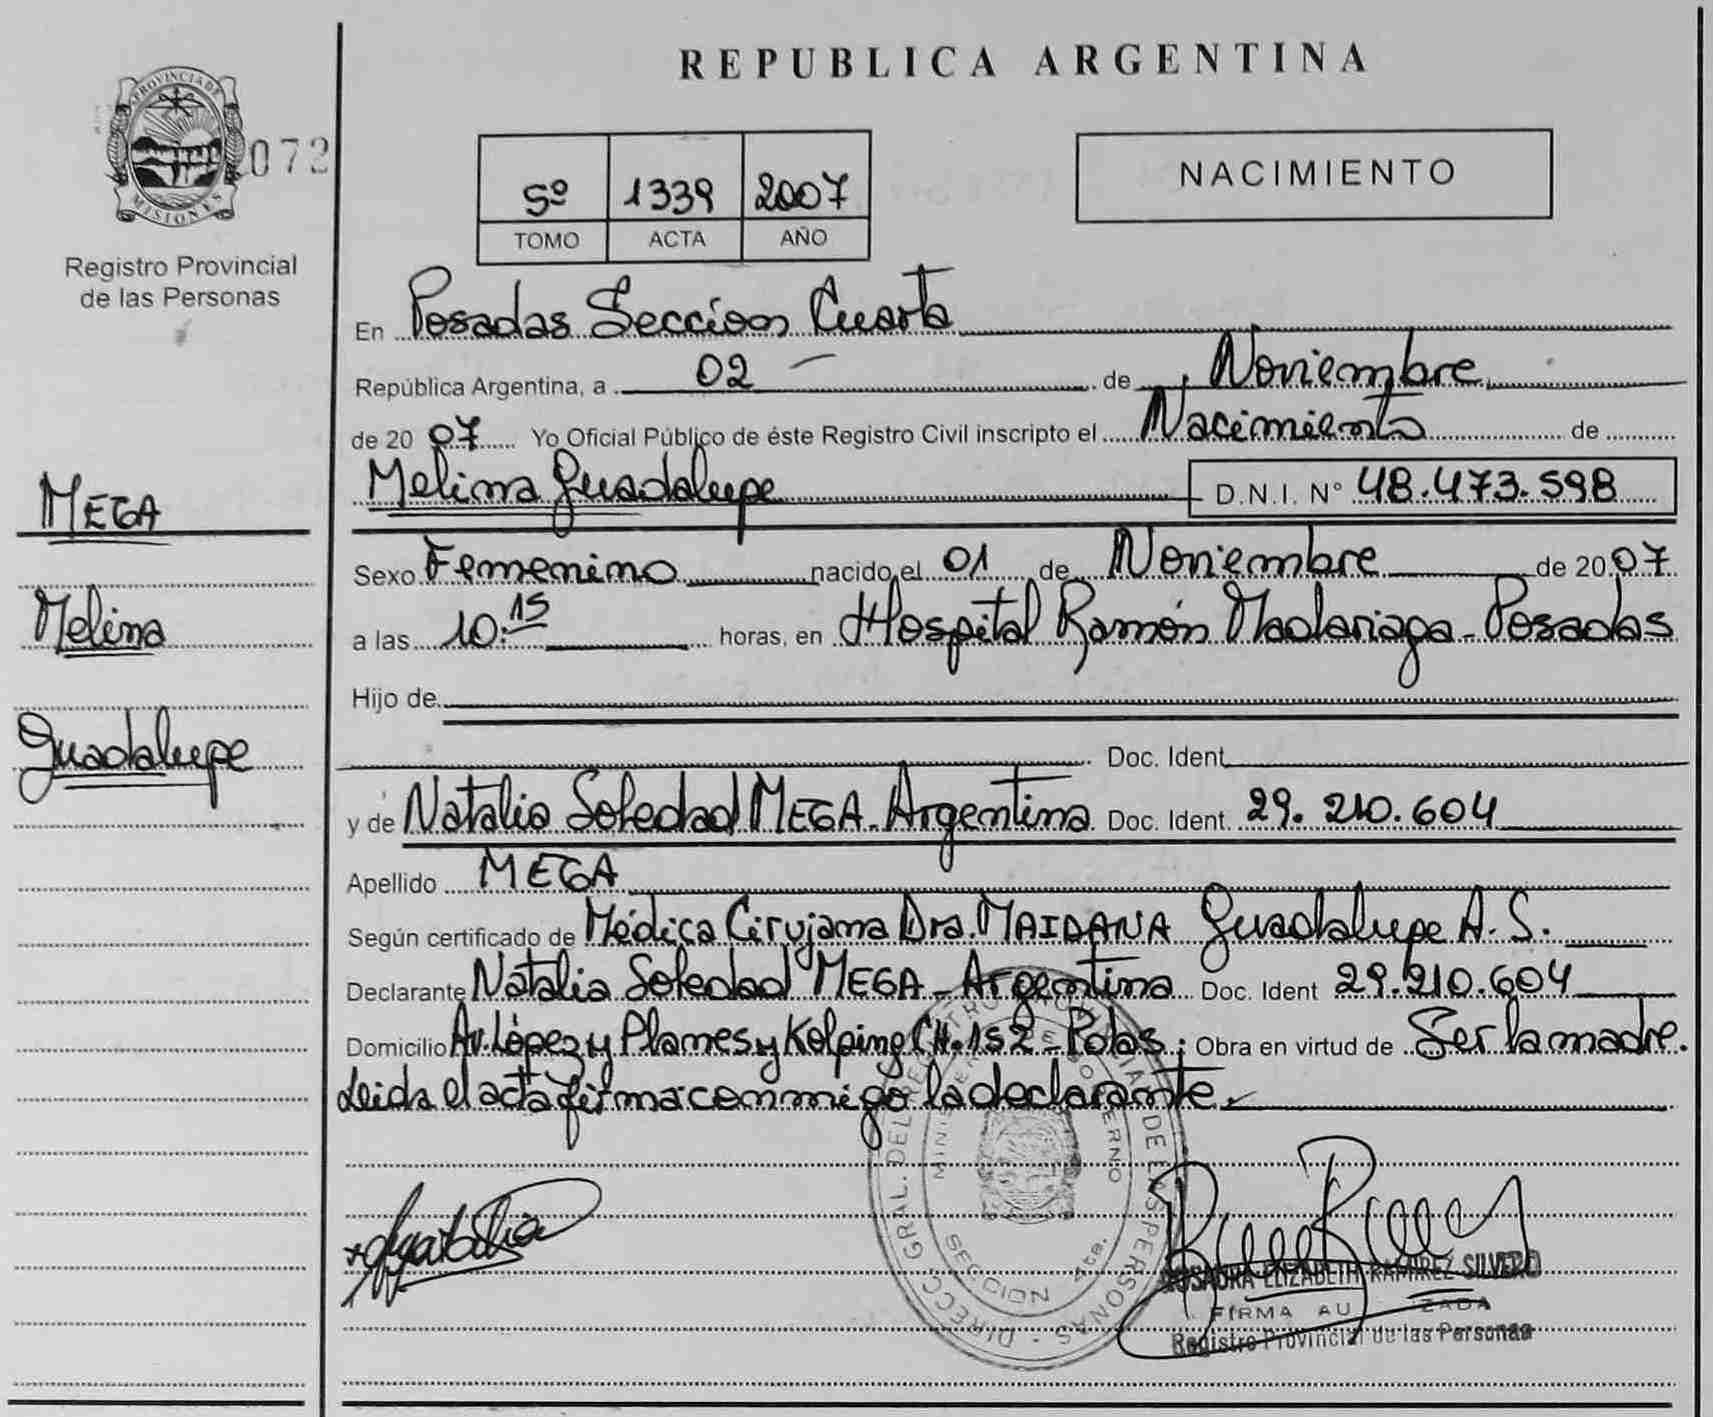 REPUBLICA ARGENTINA
PROVINCIA DE
MISIONES
072
Registro Provincial
de las Personas
5º 1339 2007
TOMO ACTA AÑO
NACIMIENTO
En Posadas Seccion Cuarta
República Argentina, a 02 de Noviembre
de 20 07 Yo Oficial Público de éste Registro Civil inscripto el Nacimiento de
Melina Guadalupe D.N.I. N° 48.473.598
MEGA
Sexo Femenino nacido el 01 de Noviembre de 20 07
Melina
a las 10:15 horas, en Hospital Ramón Madariaga - Posadas
Hijo de
Guadalupe
Doc. Ident
y de Natalia Soledad MEGA - Argentina Doc. Ident. 29.210.604
Apellido MEGA
Según certificado de Médica Cirujana Dra. MAIDANA Guadalupe A. S.
Declarante Natalia Soledad MEGA - Argentina Doc. Ident 29.210.604
Domicilio Av. López y Planes y Kolping CH. 152 - Pdas. Obra en virtud de Ser la madre.
Leida el acta firma conmigo la declarante.
DIRECC. GRAL. DEL REGISTRO PROVINCIAL DE LAS PERSONAS
MINISTERIO DE GOBIERNO
SECCION 4ta.
ELIZABETH RAMIREZ SILVERO
FIRMA AUTORIZADA
Registro Provincial de las Personas